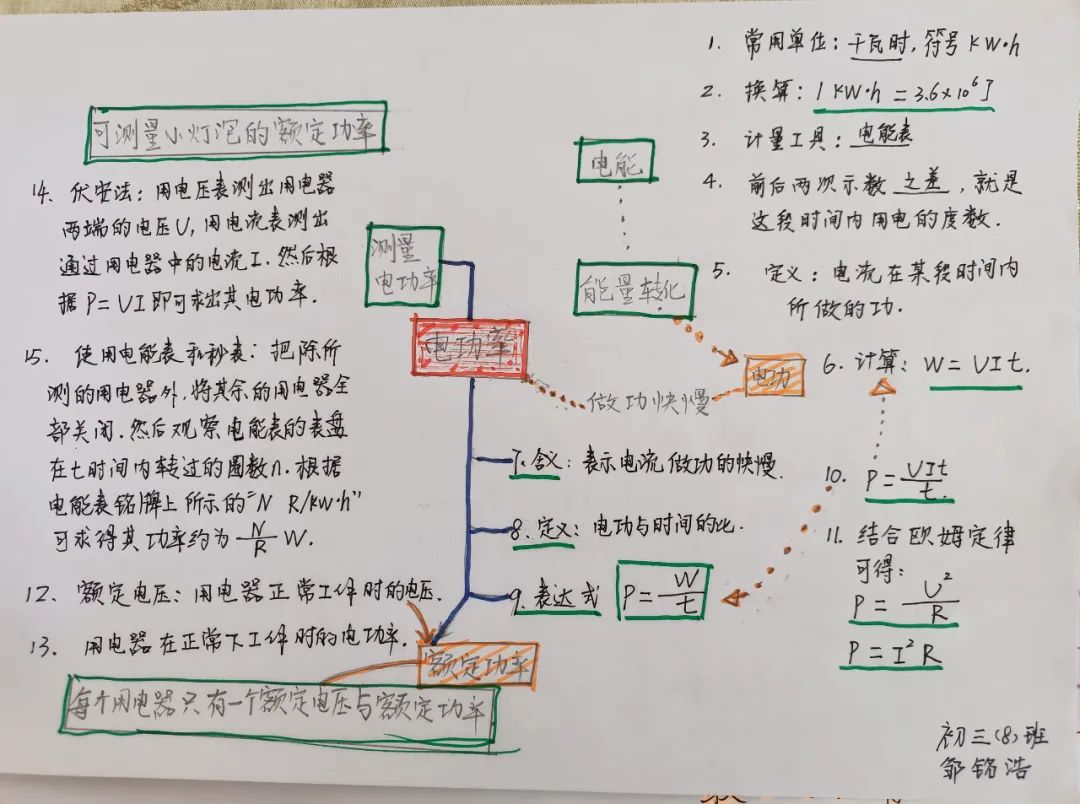 可测量小灯泡的额定功率
14. 伏安法：用电压表测出用电器
两端的电压U，用电流表测出
通过用电器中的电流I．然后根
据P=UI即可求出其电功率．
15. 使用电能表和秒表：把除所
测的用电器外，将其余的用电器全
部关闭．然后观察电能表的表盘
在t时间内转过的圈数n．根据
电能表铭牌上所示的“N R/kW·h”
可求得其功率约为 N/R W．
12. 额定电压：用电器正常工作时的电压．
13. 用电器在正常下工作时的电功率．
每个用电器只有一个额定电压与额定功率
测量
电功率
电功率
做功快慢
7. 含义：表示电流做功的快慢．
8. 定义：电功与时间的比．
9. 表达式 P=W/t
额定功率
电能
能量转化
电功
1. 常用单位：千瓦时，符号 KW·h
2. 换算：1 KW·h = 3.6×10⁶J
3. 计量工具：电能表
4. 前后两次示数之差，就是
这段时间内用电的度数．
5. 定义：电流在某段时间内
所做的功．
6. 计算：W=UIt．
10. P=UIt/t．
11. 结合欧姆定律
可得：
P=U²/R
P=I²R
初三(8)班
邹铭浩